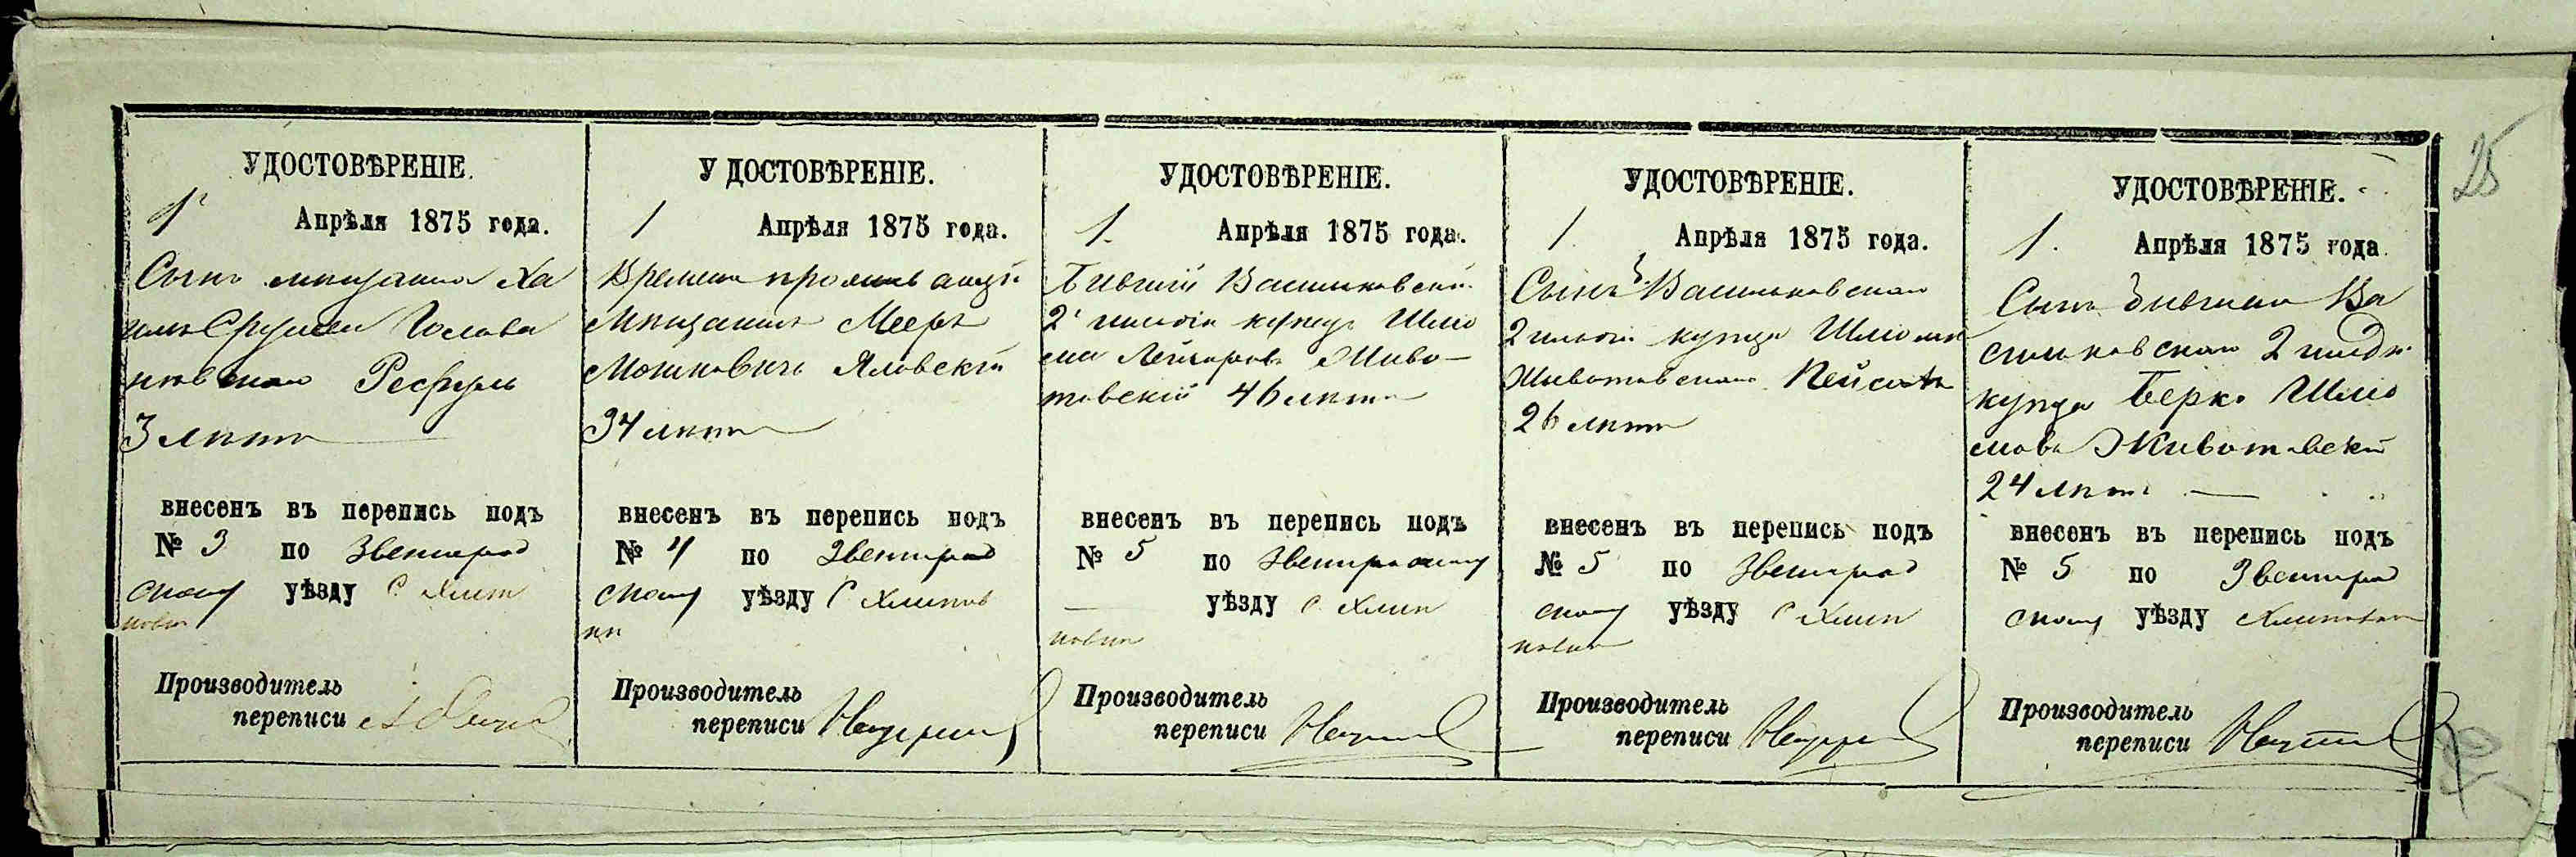 25
УДОСТОВѢРЕНІЕ.
1 Апрѣля 1875 года.
Сынъ мещанина Ха
има Голова
невскаго
3 лѣтъ
внесенъ въ перепись подъ
№ 3 по Звенигород
скому уѣзду С Хлип
новки
Производитель
переписи
УДОСТОВѢРЕНІЕ.
1 Апрѣля 1875 года.
Времен проживающій
Мещанинъ Мееръ
Мошковичъ Яловскій
34 лѣтъ
внесенъ въ перепись подъ
№ 4 по Звенигород
скому уѣзду С Хлипнов
ки
Производитель
переписи
УДОСТОВѢРЕНІЕ.
1. Апрѣля 1875 года.
Бывшій Васильковскій
2 гильдіи купецъ Шлio
ма Лейзоровъ Живо-
товскій 46 лѣтъ
внесенъ въ перепись подъ
№ 5 по Звенигородскому
уѣзду С Хлип
новки
Производитель
переписи
УДОСТОВѢРЕНІЕ.
1. Апрѣля 1875 года.
Сынъ б. Васильковскаго
2 гильдіи купца Шліомы
Животовскаго Пейсахъ
26 лѣтъ
внесенъ въ перепись подъ
№ 5 по Звенигород
скому уѣзду С Хлип
новки
Производитель
переписи
УДОСТОВѢРЕНІЕ.
1. Апрѣля 1875 года.
Сынъ бывшаго Ва
сильковскаго 2 гильдіи
купца Берко Шліо
мовъ Животовскій
24 лѣтъ
внесенъ въ перепись подъ
№ 5 по Звенигород
скому уѣзду Хлипновки
Производитель
переписи